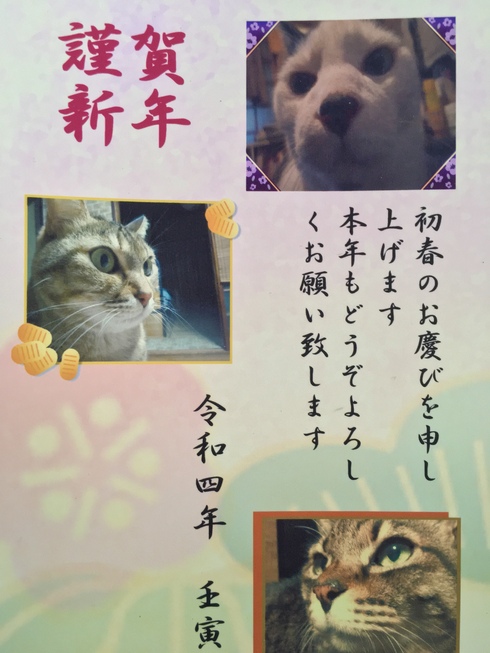 謹賀
新年
初春のお慶びを申し
上げます
本年もどうぞよろし
くお願い致します
令和四年 壬寅